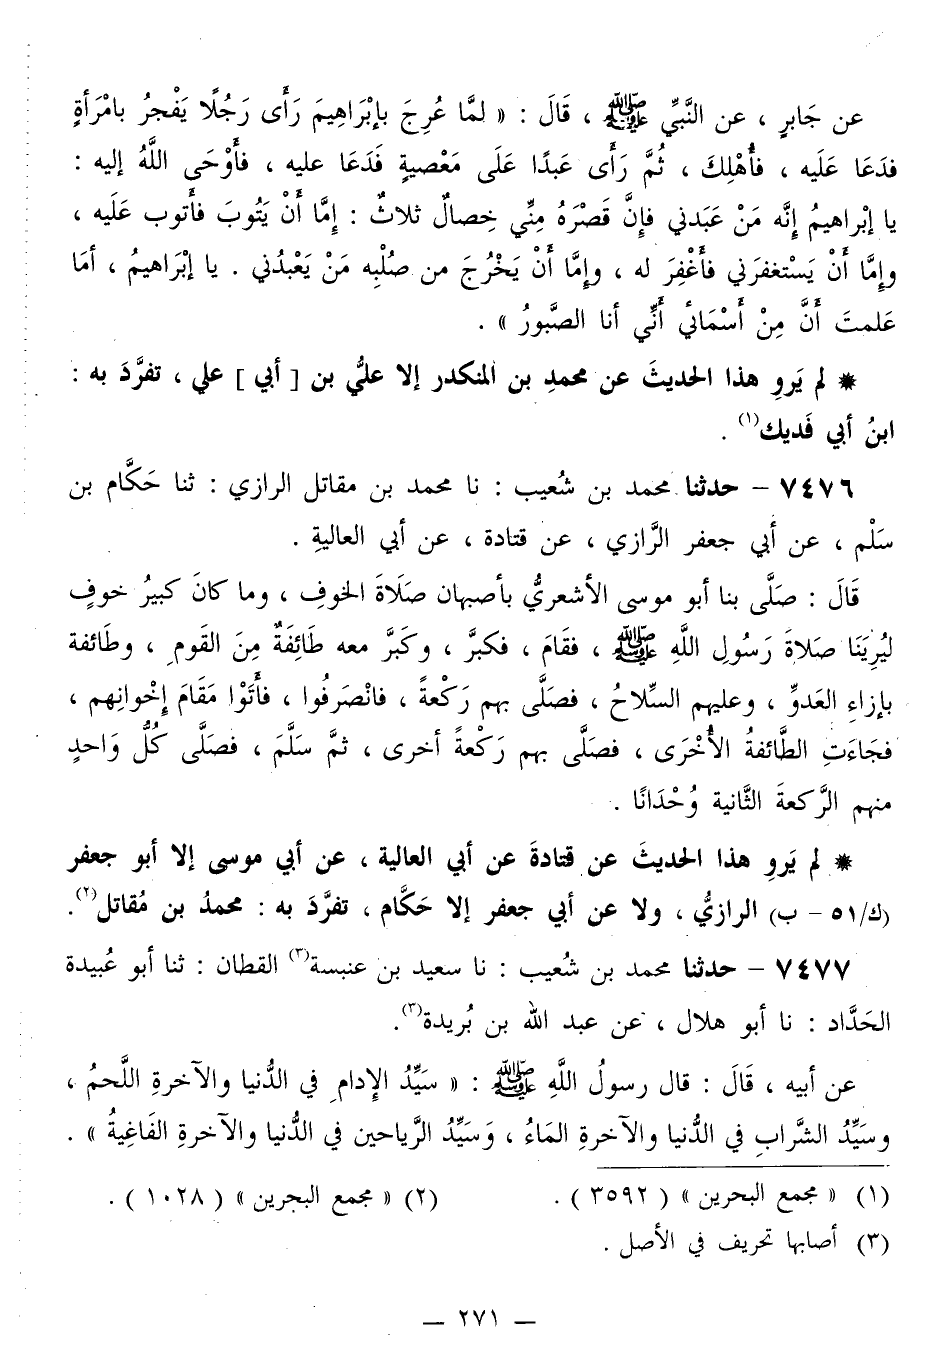 عن جَابرٍ ، عن النَّبيِّ ﷺ ، قَالَ : « لمَّا عُرِجَ بإبْرَاهِيمَ رَأَى رَجُلًا يَفْجرُ بامْرَأةٍ
فدَعَا عَلَيه ، فأُهْلِكَ ، ثُمَّ رَأى عَبدًا عَلَى مَعْصيةٍ فَدَعَا عليه ، فأَوْحَى اللَّهُ إليه :
يا إبْراهيمُ إنَّه مَنْ عَبَدني فإنَّ قَصْرَهُ مِنِّي خِصالٌ ثلاثٌ : إمَّا أَنْ يَتُوبَ فأتوب عَلَيه ،
وإمَّا أَنْ يَسْتغفرَني فأَغْفِرَ له ، وإمَّا أَنْ يَخْرُجَ من صُلْبِه مَنْ يَعْبدُني . يا إبْرَاهيمُ ، أمَا
عَلمتَ أَنَّ مِنْ أَسْمَائي أَنِّي أنا الصَّبورُ » .
✵ لم يَروِ هذا الحديثَ عن محمدِ بن المنكدر إلا عليُّ بن [ أبي ] علي ، تفرَّدَ به :
ابنُ أبي فَديك(١) .
٧٤٧٦ – حدثنا محمد بن شُعيب : نا محمد بن مقاتل الرازي : ثنا حَكَّام بن
سَلْم ، عن أبي جعفر الرَّازي ، عن قتادة ، عن أبي العاليةِ .
قَالَ : صَلَّى بنا أبو موسى الأشعريُّ بأصبهان صَلَاةَ الخوفِ ، وما كانَ كبيرُ خوفٍ
ليُرِيَنَا صلاةَ رَسُولِ اللَّهِ ﷺ ، فقَامَ ، فكبَّر ، وكَبَّر معه طَائِفَةٌ مِنَ القَومِ ، وطَائفة
بإزاءِ العَدوِّ ، وعليهم السِّلاحُ ، فصَلَّى بهم رَكْعةً ، فانْصَرفُوا ، فأَتَوْا مَقَامَ إخْوانِهم ،
فجَاءَتِ الطَّائفةُ الأُخْرَى ، فصَلَّى بهم رَكْعةً أخرى ، ثمَّ سَلَّمَ ، فصَلَّى كُلُّ وَاحدٍ
منهم الرَّكعةَ الثَّانية وُحْدَانًا .
✵ لم يَروِ هذا الحديثَ عن قتادةَ عن أبي العالية ، عن أبي موسى إلا أبو جعفر
(ك/٥١ – ب) الرازيُّ ، ولا عن أبي جعفر إلا حَكَّام ، تفرَّدَ به : محمدُ بن مُقاتل(٢).
٧٤٧٧ – حدثنا محمد بن شُعيب : نا سعيد بن عنبسة(٣) القطان : ثنا أبو عُبيدة
الحَدَّاد : نا أبو هلال ، عن عبد الله بن بُريدة(٣).
عن أبيه ، قَالَ : قال رسولُ اللَّهِ ﷺ : « سَيِّدُ الإدامِ في الدُّنيا والآخرةِ اللَّحمُ ،
وسَيِّدُ الشَّرابِ في الدُّنيا والآخرةِ المَاءُ ، وَسَيِّدُ الرَّياحين في الدُّنيا والآخرةِ الفَاغِيةُ » .
(١) « مجمع البحرين » ( ٣٥٩٢ ) . (٢) « مجمع البحرين » ( ١٠٢٨ ) .
(٣) أصابها تحريف في الأصل .
– ٢٧١ –